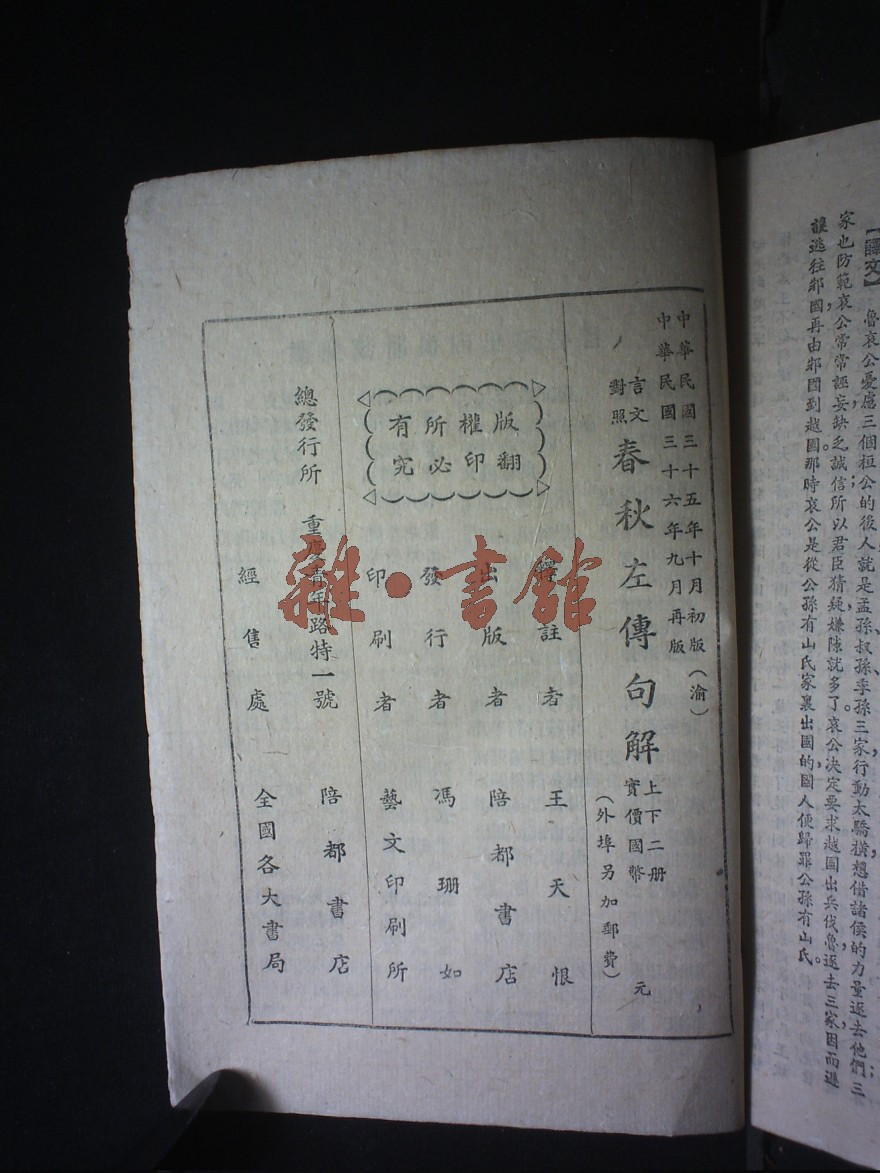 【譯文】　魯哀公憂慮三個桓公的後人，就是孟孫、叔孫、季孫三家，行動太驕橫，想借諸侯的力量逐去他們；三
家也防範哀公，常常誣妄缺乏誠信，所以君臣猜疑，嫌隙就多了。哀公決定要求越國出兵伐魯，逐去三家，因而遜
逃往邾國，再由邾國到越國。那時哀公是從公孫有山氏家裏出國的，國人便歸罪公孫有山氏。
中華民國三十五年十月初版（渝）
中華民國三十六年九月再版
言文對照
春秋左傳句解
上下二册
實價國幣　元
（外埠另加郵費）
版權所有
翻印必究
譯註者　王天恨
出版者　陪都書店
發行者　馮珊如
印刷者　藝文印刷所
總發行所　重慶青年路特一號　陪都書店
經售處　全國各大書局
雜·書館